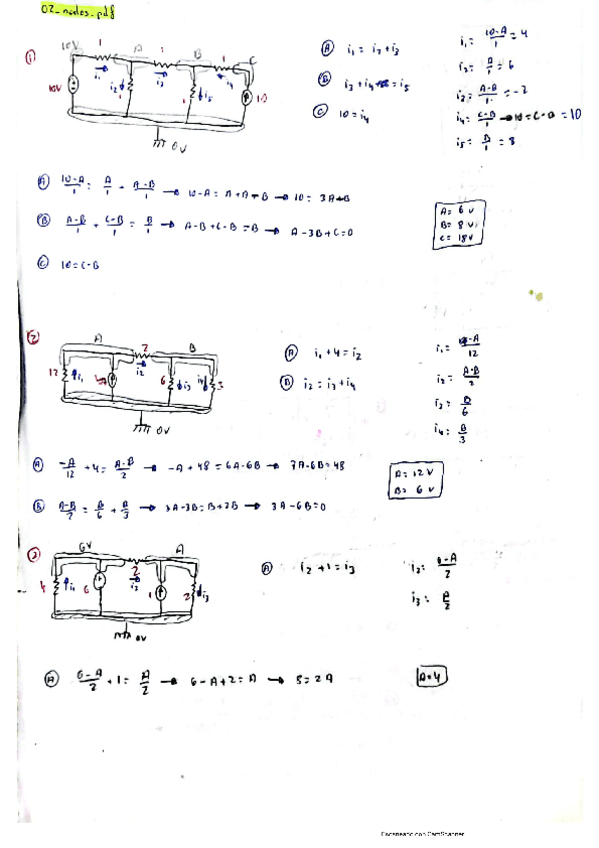 02_nodes_pdf
①
10V 1 A 1 B 1 C
10V i₁ i₂ 1 i₃ 1 i₅ i₄ 10
0V
Ⓐ i₁ = i₂+i₃
Ⓑ i₃+i₄ = i₅
Ⓒ 10 = i₄
i₁ = 10-A/1 = 4
i₂ = A/1 = 6
i₃ = A-B/1 = -2
i₄ = C-B/1 → 10 = C-B = 10
i₅ = B/1 = 8
Ⓐ 10-A/1 = A/1 + A-B/1 → 10-A = A+A-B → 10 = 3A-B
Ⓑ A-B/1 + C-B/1 = B/1 → A-B+C-B = B → A-3B+C=0
Ⓒ 10=C-B
A= 6 V
B= 8 V
C= 18V
②
A 2 B
12 i₁ i₂ 6 i₃ i₄ 3
0V
Ⓐ i₁+4=i₂
Ⓑ i₂ = i₃+i₄
i₂ = A-B/2
i₃ = B/6
i₄ = B/3
Ⓐ -A/12 +4 = A-B/2 → -A+48 = 6A-6B → 7A-6B=48
Ⓑ → 3A-3B=B+2B → 3A-6B=0
A= 12 V
B= 6 V
③
6V 2 A
4 i₁ 6 i₂ 1 2 i₃
0V
Ⓐ i₂+1=i₃
i₂ = 6-A/2
i₃ = A/2
Ⓐ 6-A/2 +1 = A/2 → 6-A+2=A → 8=2A
A=4
Escaneado con CamScanner